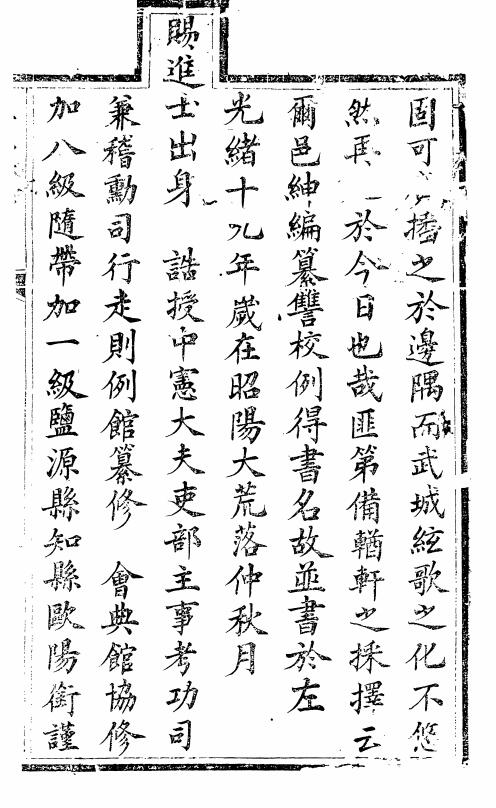 固可播之於邊隅而武城絃歌之化不悠
然再於今日也哉匪第備輶軒之採擇云
爾邑紳編纂讐校例得書名故並書於左
光緒十九年歲在昭陽大荒落仲秋月
賜進士出身 誥授中憲大夫吏部主事考功司
兼稽勳司行走則例館纂修 會典館協修
加八級隨帶加一級鹽源縣知縣歐陽銜謹